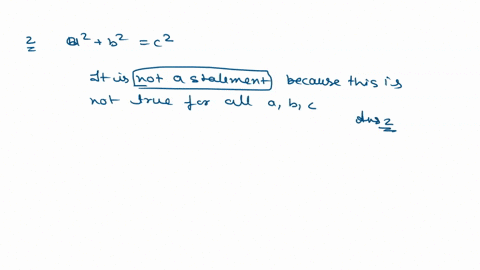 2 a² + b² = c²
It is not a statement because this is
not true for all a, b, c
Ans 2